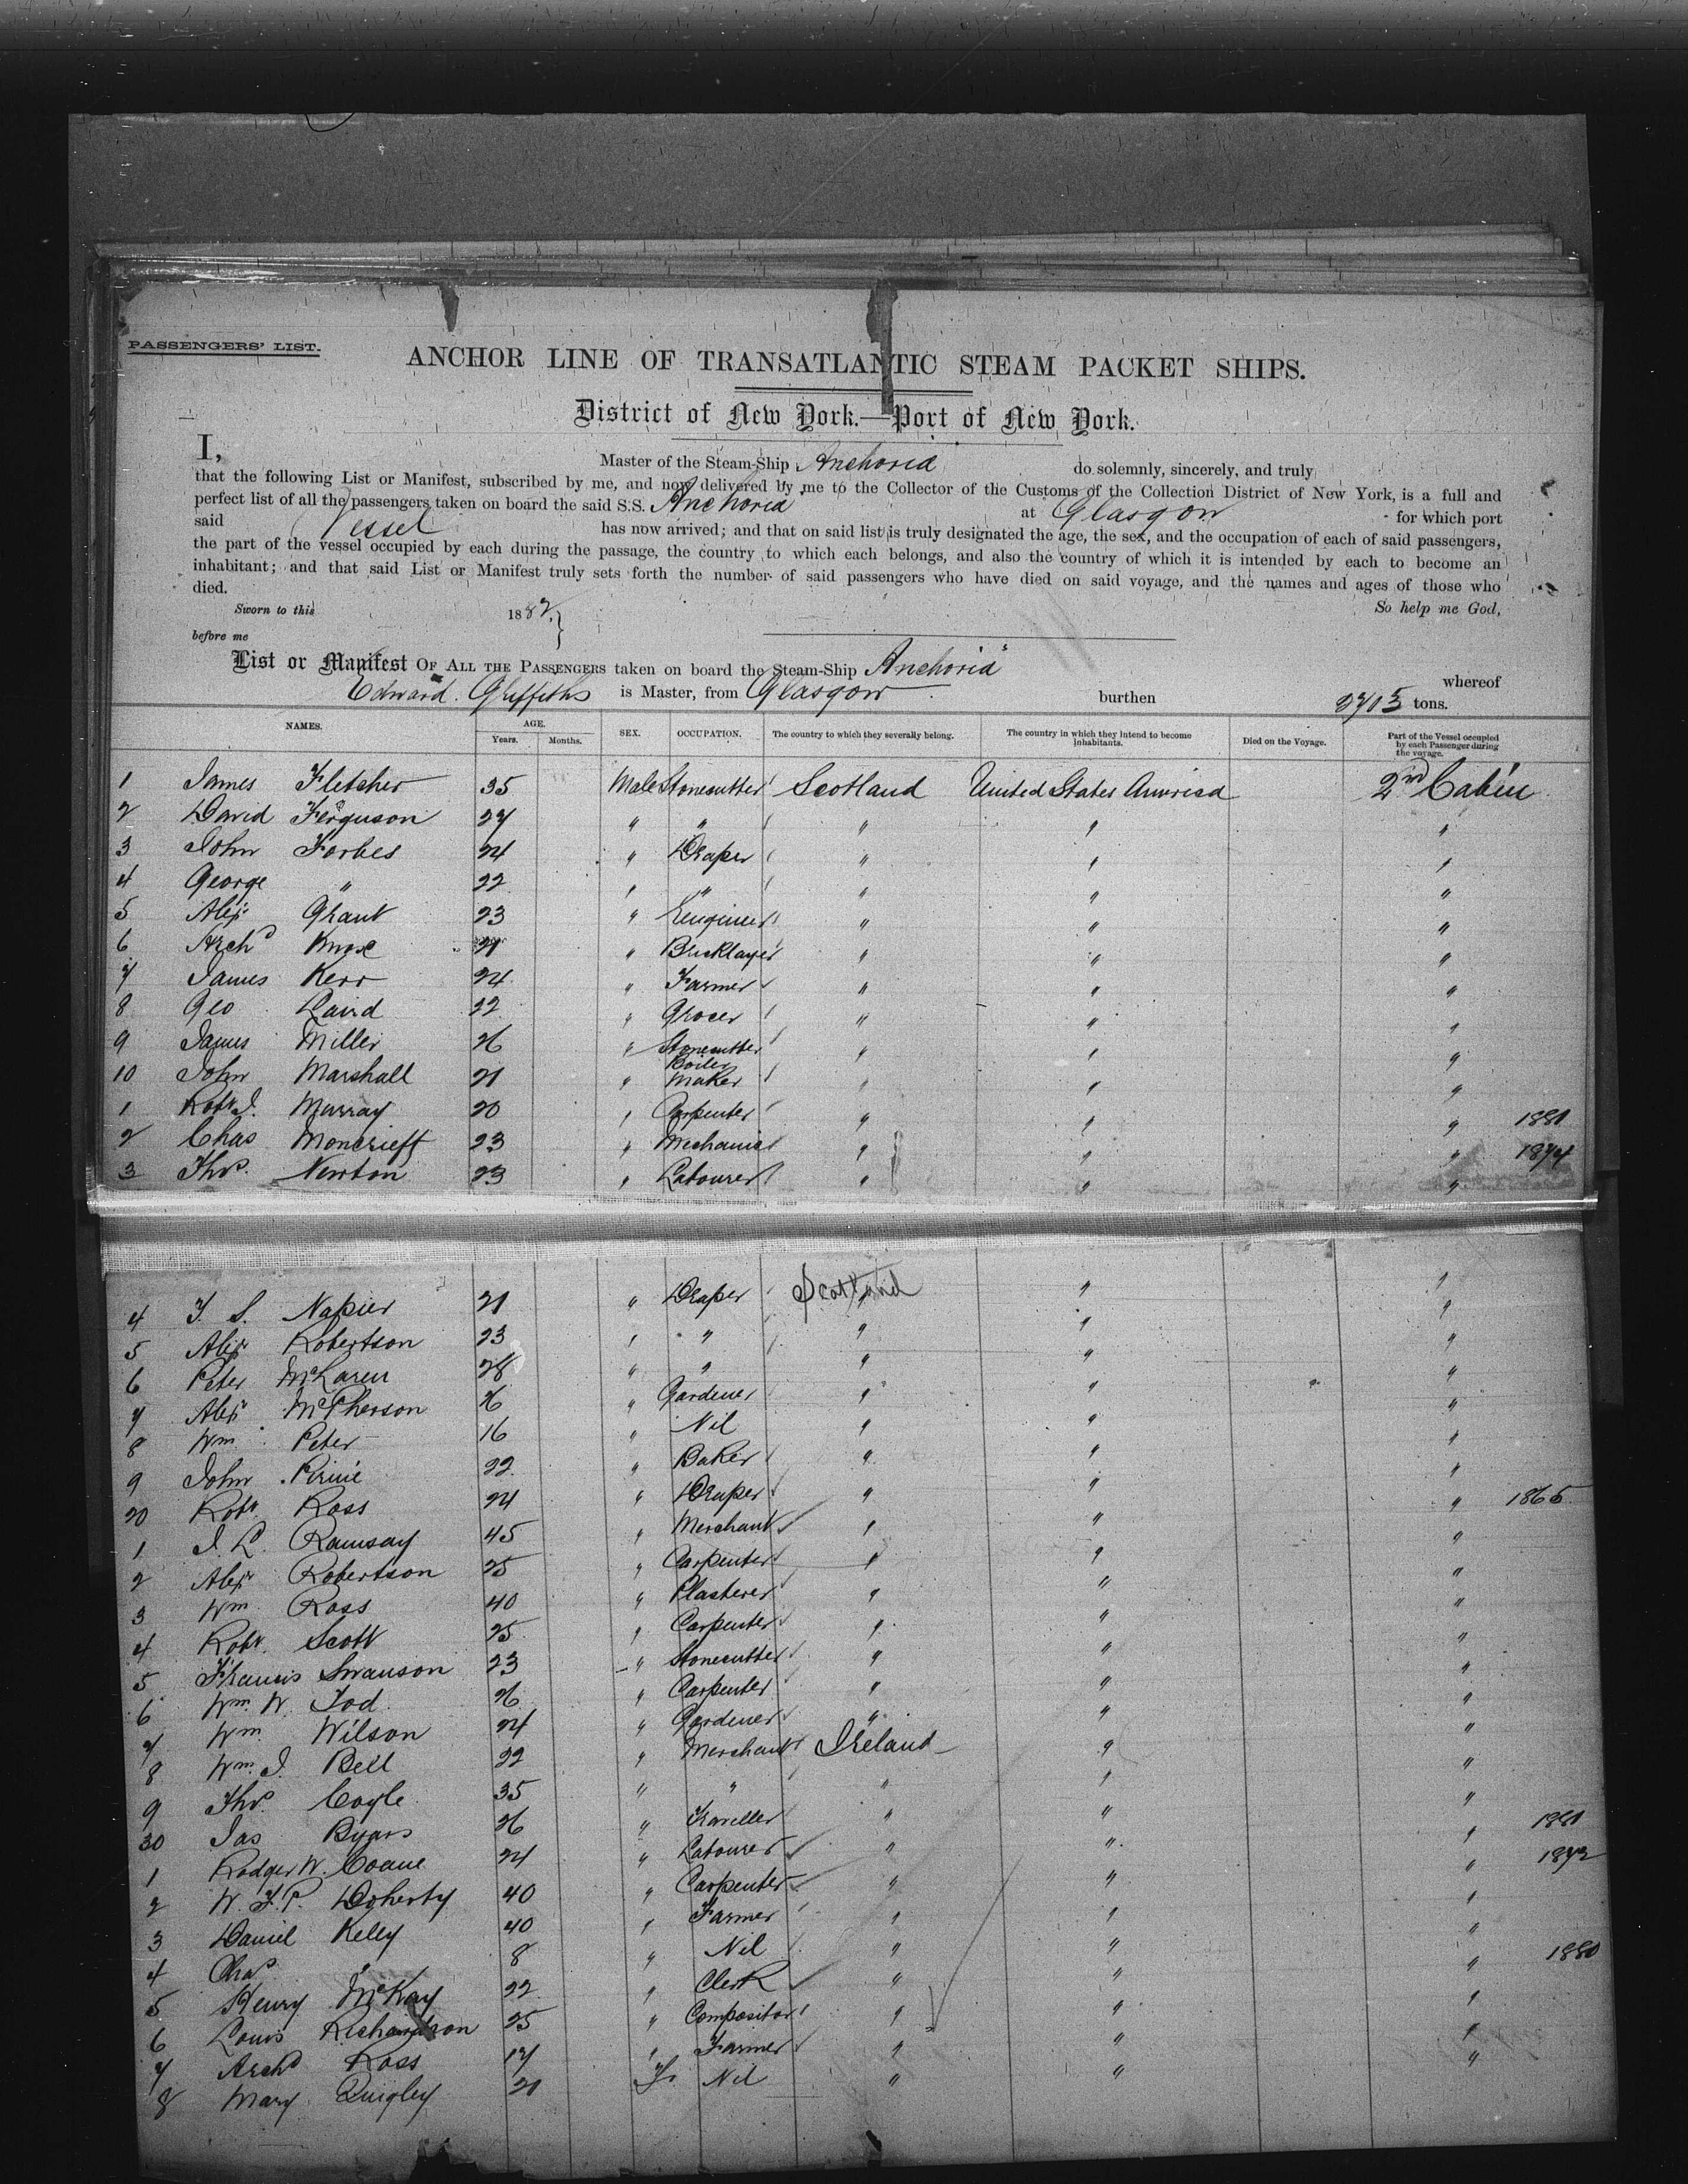 PASSENGERS' LIST.
ANCHOR LINE OF TRANSATLANTIC STEAM PACKET SHIPS.
District of New York.—Port of New York.
I, Master of the Steam-Ship Anchoria do solemnly, sincerely, and truly
that the following List or Manifest, subscribed by me, and now delivered by me to the Collector of the Customs of the Collection District of New York, is a full and
perfect list of all the passengers taken on board the said S.S. Anchoria at Glasgow for which port
said Vessel has now arrived; and that on said list is truly designated the age, the sex, and the occupation of each of said passengers,
the part of the vessel occupied by each during the passage, the country to which each belongs, and also the country of which it is intended by each to become an
inhabitant; and that said List or Manifest truly sets forth the number of said passengers who have died on said voyage, and the names and ages of those who
died.
Sworn to this 1882 So help me God,
before me
List or Manifest OF ALL THE PASSENGERS taken on board the Steam-Ship "Anchoria" whereof
Edward Griffiths is Master, from Glasgow burthen 2713 tons.
NAMES. AGE. Years. Months. SEX. OCCUPATION. The country to which they severally belong. The country in which they intend to become inhabitants. Died on the Voyage. Part of the Vessel occupied by each Passenger during the voyage.
1 James Fletcher 35 Male Stonecutter Scotland United States America 2nd Cabin
2 David Ferguson 27 " " " " "
3 John Forbes 24 " Draper " " "
4 George " 22 " " " " "
5 Alexr Grant 23 " Engineer " " "
6 Archd Knox 21 " Bricklayer " " "
7 James Kerr 24 " Farmer " " "
8 Geo Laird 22 " Grocer " " "
9 James Miller 26 " Stonecutter " " "
10 John Marshall 21 " Boiler Maker " " "
1 Robt J. Murray 20 " Carpenter " " " 1881
2 Chas Moncrieff 23 " Mechanic " " " 1874
3 Thos. Newton 23 " Labourer " " "
4 T. S. Napier 21 " Draper Scotland " "
5 Alexr Robertson 23 " " " " "
6 Peter McLaren 28 " " " " "
7 Alexr McPherson 26 " Gardener " " "
8 Wm Peter 16 " Nil " " "
9 John Pirrie 22 " Baker " " "
20 Robt. Ross 24 " Draper " " " 1865
1 J. L. Ramsay 45 " Merchant " " "
2 Alexr Robertson 25 " Carpenter " " "
3 Wm. Ross 40 " Plasterer " " "
4 Robt. Scott 25 " Carpenter " " "
5 Francis Swanson 23 " Stonecutter " " "
6 Wm. W. Tod 26 " Carpenter " " "
7 Wm. Wilson 24 " Gardener " " "
8 Wm. J. Bell 22 " Merchant Ireland " "
9 Thos. Coyle 35 " " " " "
30 Jas Byars 26 " Traveller " " " 1881
1 Rodger W. Coane 24 " Labourer " " " 1872
2 W. F. P. Doherty 40 " Carpenter " " "
3 Daniel Kelly 40 " Farmer " " "
4 Chas. " 8 " Nil " " " 1880
5 Henry McKay 22 " Clerk " " "
6 Louis Richardson 25 " Compositor " " "
7 Archd Ross 17 " Farmer " " "
8 Mary Quigley 21 F. Nil " "